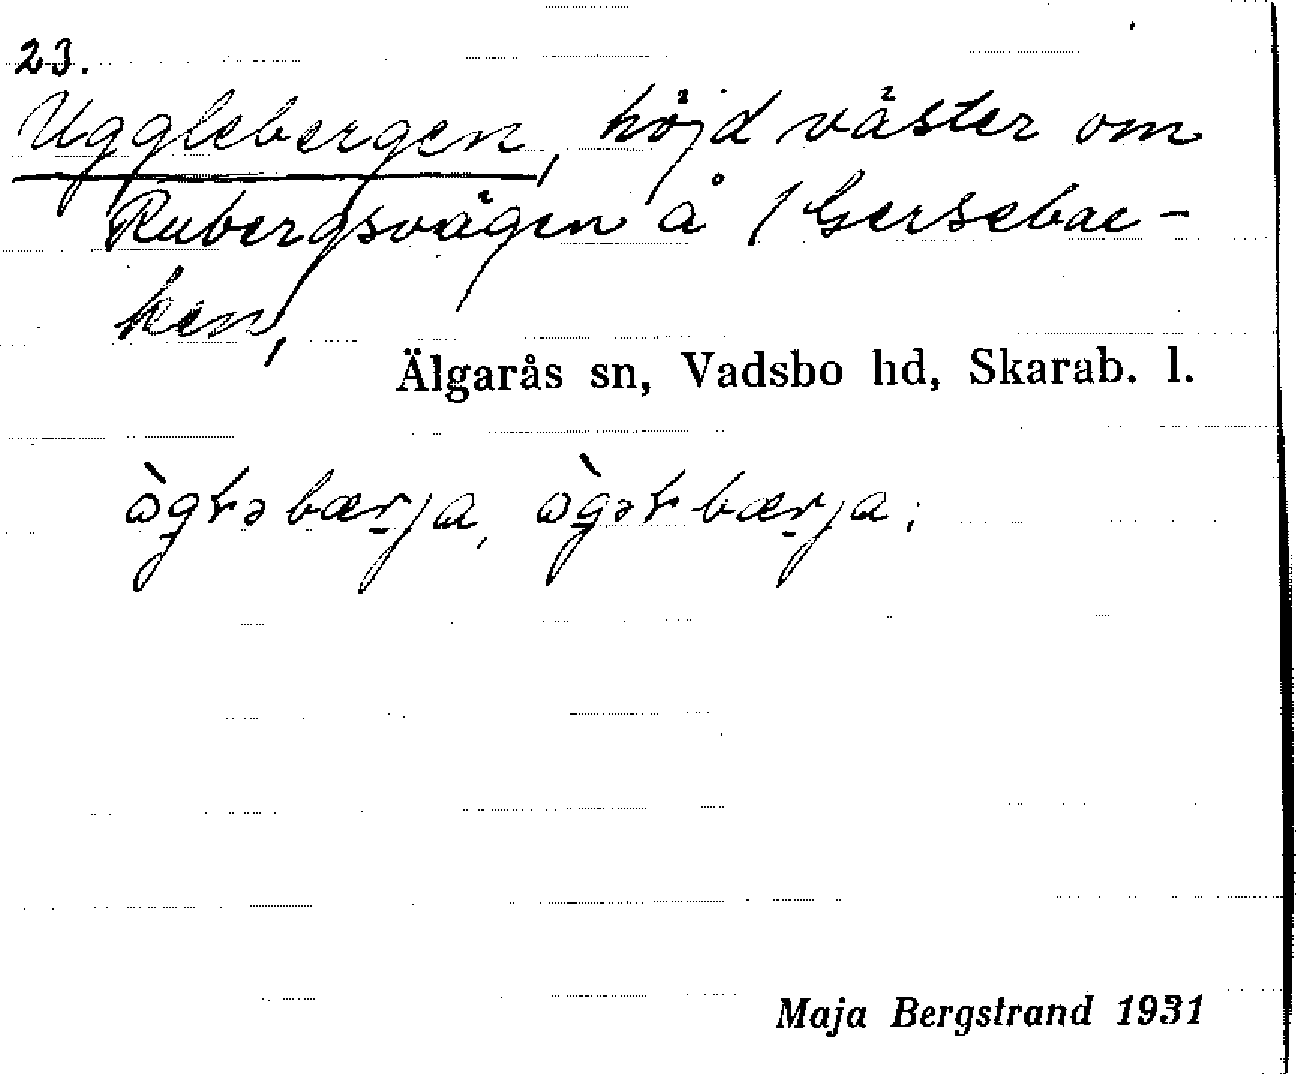 23.
Ugglebergen, höjd väster om
Rubergsvägen å / Gersebac-
ken,
Älgarås sn, Vadsbo hd, Skarab. l.
ògləbærja, ògəlbærja;
Maja Bergstrand 1931